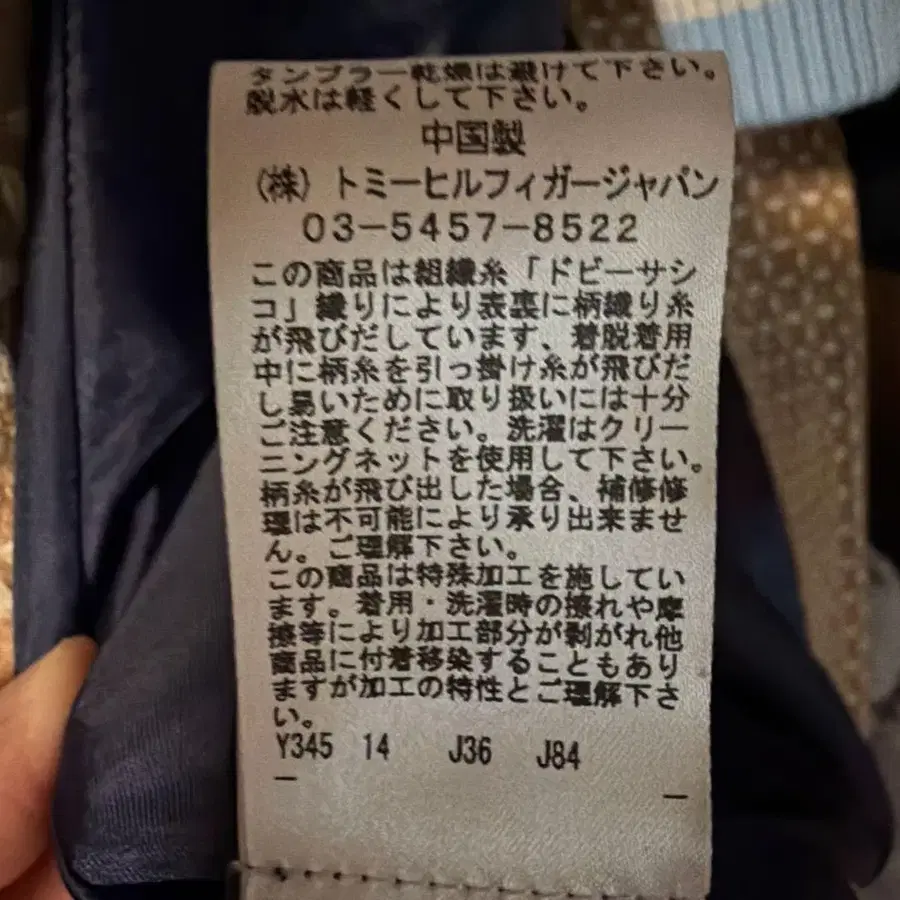 タンブラー乾燥は避けて下さい。
脱水は軽くして下さい。
中国製
（株）トミーヒルフィガージャパン
03−5457−8522
この商品は組織糸「ドビーサシ
コ」織りにより表裏に柄織り糸
が飛びだしています、着脱着用
中に柄糸を引っ掛け糸が飛びだ
し易いために取り扱いには十分
ご注意ください。洗濯はクリー
ニングネットを使用して下さい。
柄糸が飛び出した場合、補修修
理は不可能により承り出来ませ
ん。ご理解下さい。
この商品は特殊加工を施してい
ます。着用・洗濯時の擦れや摩
擦等により加工部分が剥がれ他
商品に付着移染することもあり
ますが加工の特性とご理解下さ
い。
Y345 14 J36 J84